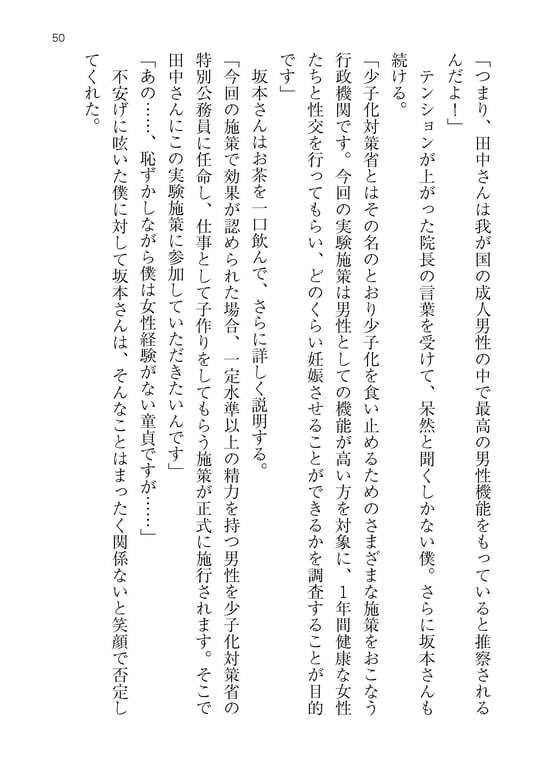 50
「つまり、田中さんは我が国の成人男性の中で最高の男性機能をもっていると推察される
んだよ！」
　テンションが上がった院長の言葉を受けて、呆然と聞くしかない僕。さらに坂本さんも
続ける。
「少子化対策省とはその名のとおり少子化を食い止めるためのさまざまな施策をおこなう
行政機関です。今回の実験施策は男性としての機能が高い方を対象に、１年間健康な女性
たちと性交を行ってもらい、どのくらい妊娠させることができるかを調査することが目的
です」
　坂本さんはお茶を一口飲んで、さらに詳しく説明する。
「今回の施策で効果が認められた場合、一定水準以上の精力を持つ男性を少子化対策省の
特別公務員に任命し、仕事として子作りをしてもらう施策が正式に施行されます。そこで
田中さんにこの実験施策に参加していただきたいんです」
「あの……、恥ずかしながら僕は女性経験がない童貞ですが……」
　不安げに呟いた僕に対して坂本さんは、そんなことはまったく関係ないと笑顔で否定し
てくれた。